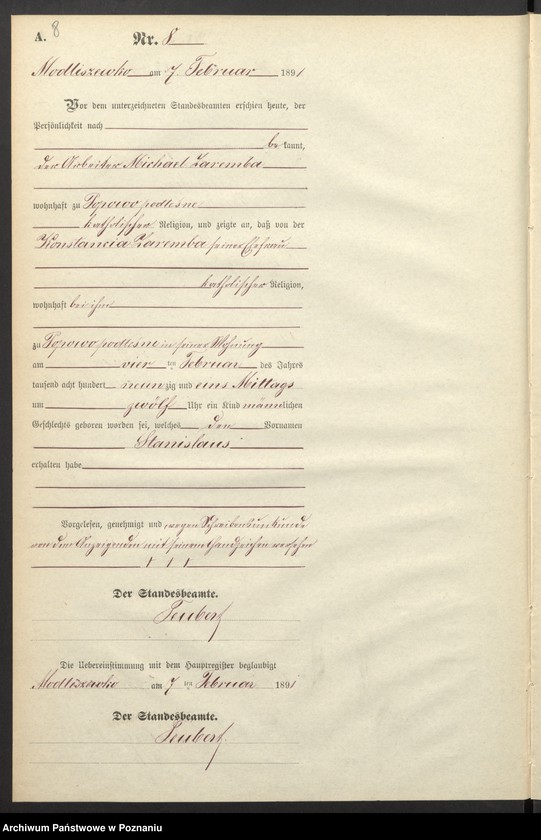 A. 8
Nr. 8
Modliszewko am 7 Februar 1891
Vor dem unterzeichneten Standesbeamten erschien heute, der
Persönlichkeit nach
be kannt,
der Arbeiter Michael Zaremba
wohnhaft zu Popowo podlesne
katholischer Religion, und zeigte an, daß von der
Konstancia Zaremba seiner Ehefrau
katholischer Religion,
wohnhaft bei ihm
zu Popowo podlesne in seiner Wohnung
am vier ten Februar des Jahres
tausend acht hundert neunzig und eins Mittags
um zwölf Uhr ein Kind männlichen
Geschlechts geboren worden sei, welches den Vornamen
Stanislaus
erhalten habe
Vorgelesen, genehmigt und wegen Schreibensunkunde
von dem Anzeigenden mit seinem Handzeichen versehen
+ + +
Der Standesbeamte.
Die Uebereinstimmung mit dem Hauptregister beglaubigt
Modliszewko am 7 ten Februar 1891
Der Standesbeamte.
Archiwum Państwowe w Poznaniu